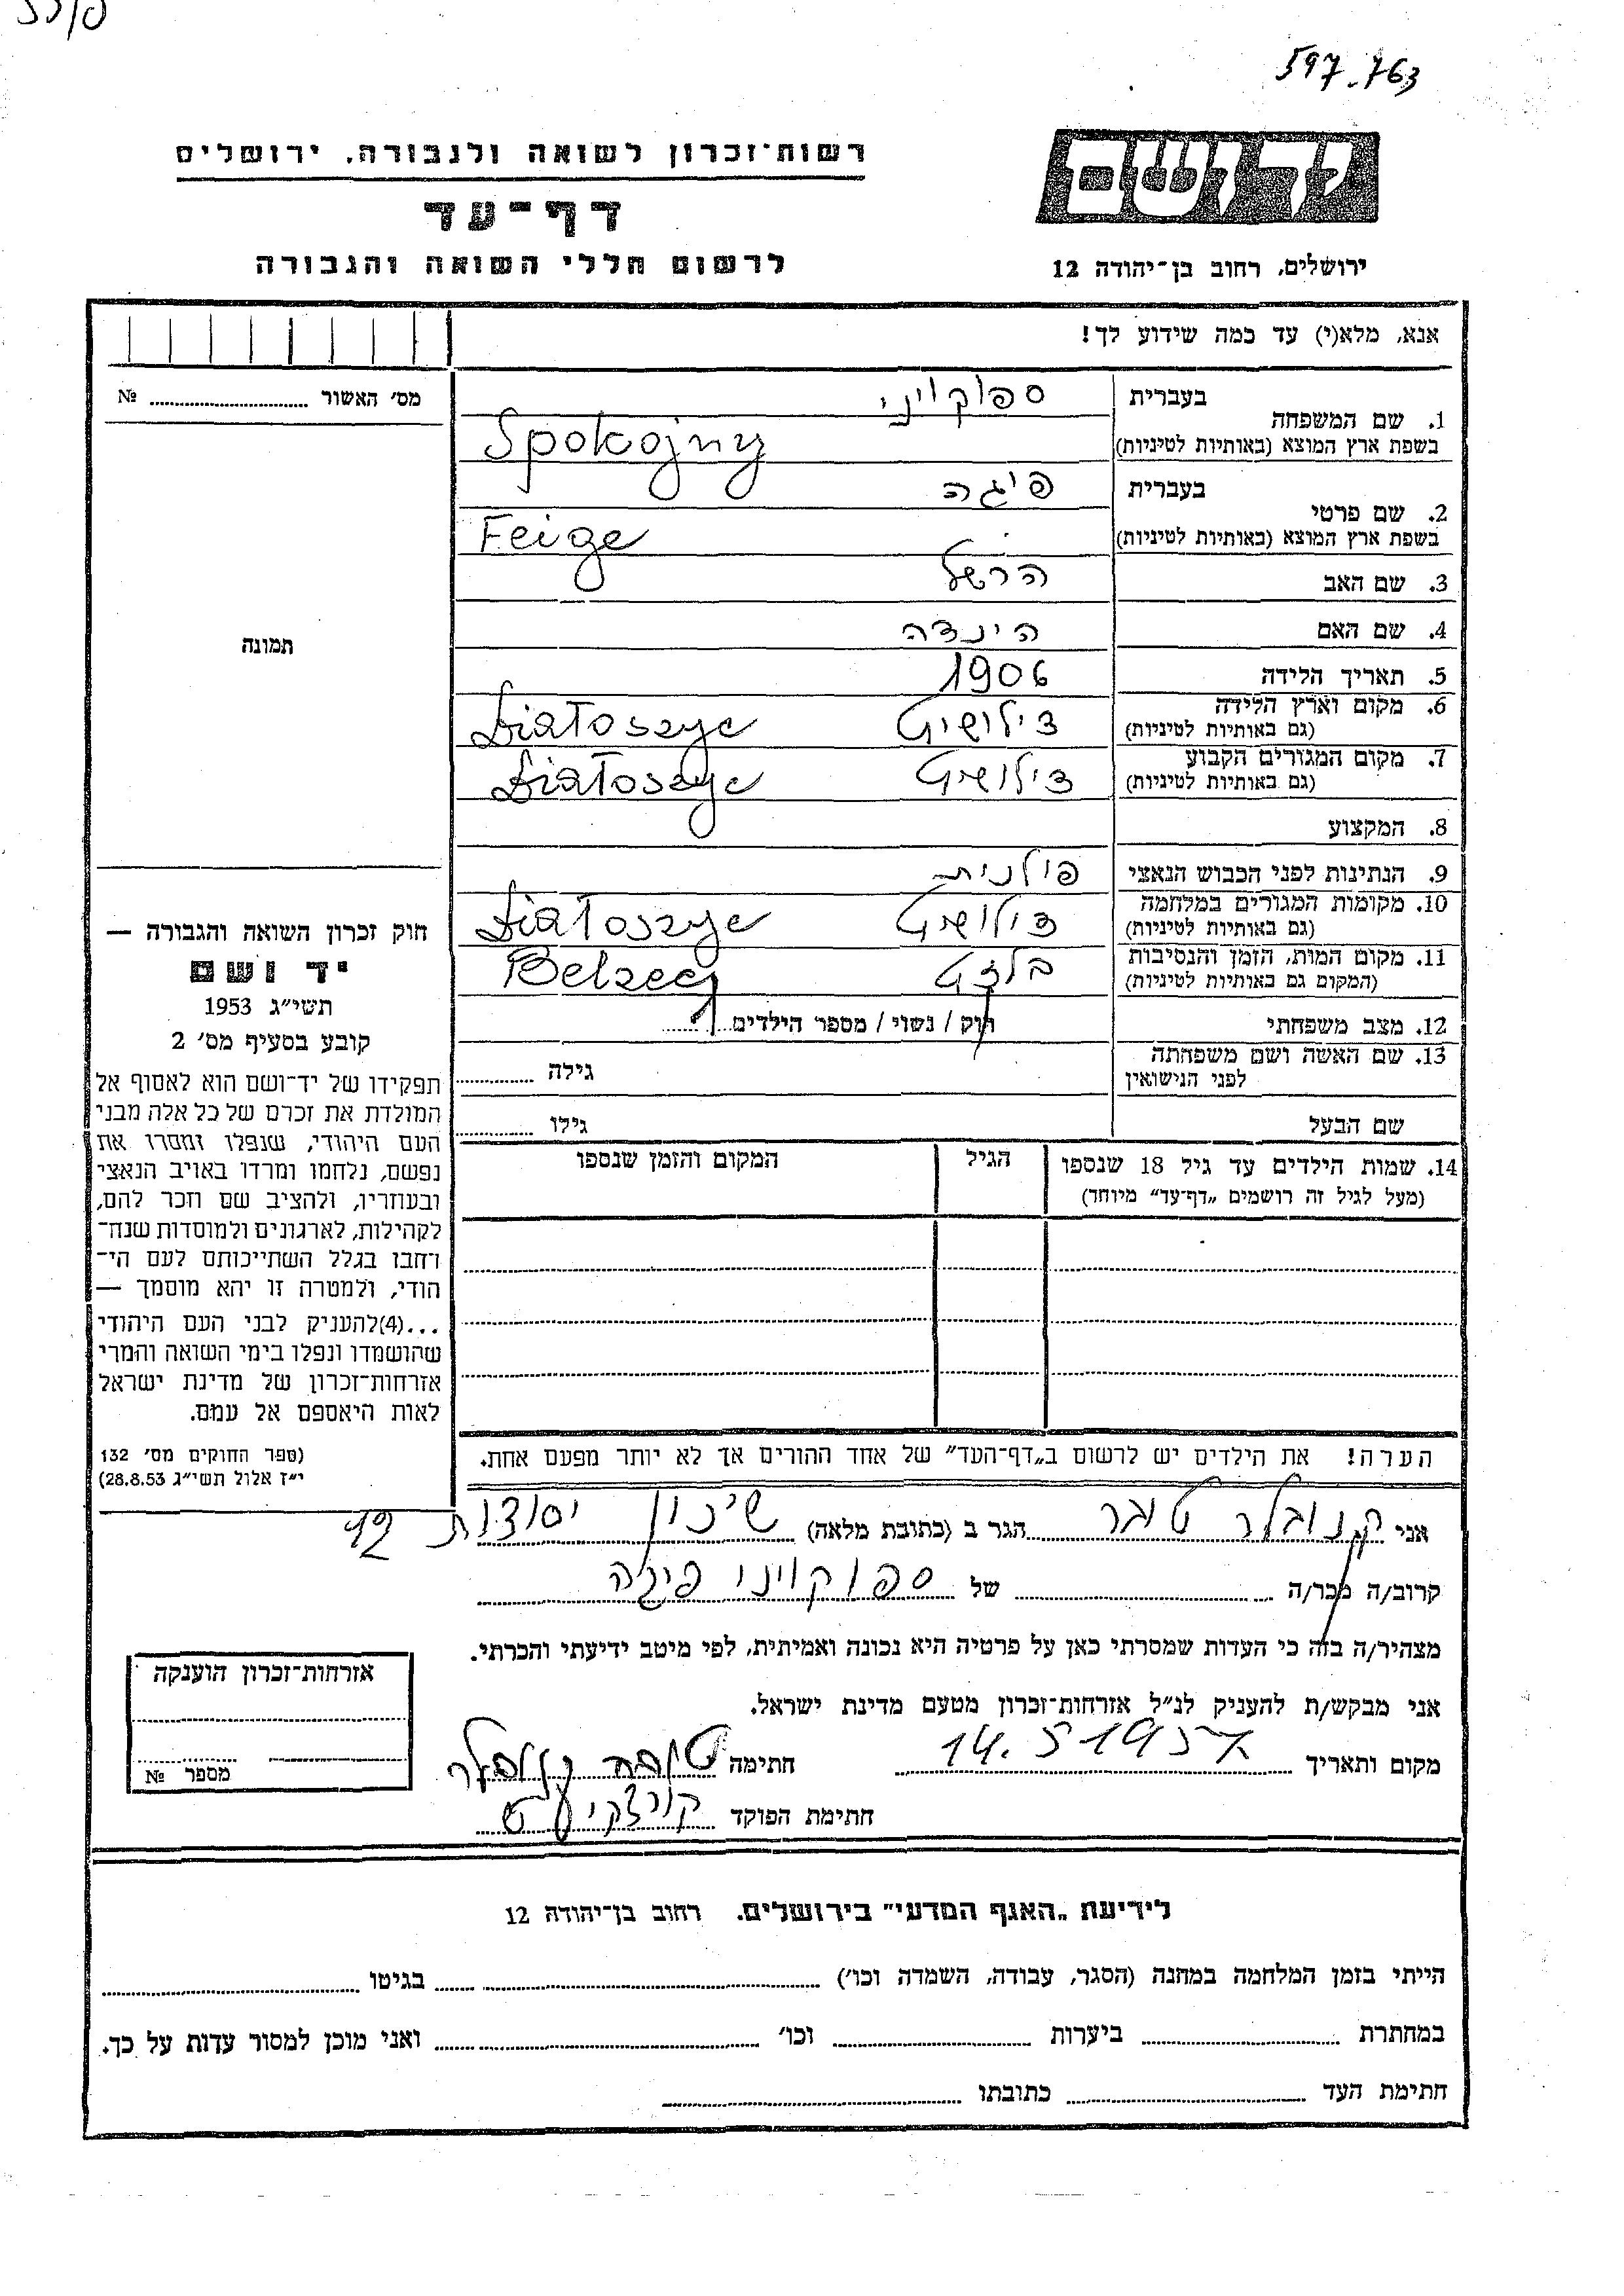 597.763
רשות־זכרון לשואה ולגבורה, ירושלים
דף־עד
לרשום חללי השואה והגבורה
יד ושם
ירושלים, רחוב בן־יהודה 12
אנא, מלא(י) עד כמה שידוע לך!
מס׳ האשור № 
1. שם המשפחה
בעברית ספוקויני
בשפת ארץ המוצא (באותיות לטיניות) Spokojny
2. שם פרטי
בעברית פיגה
בשפת ארץ המוצא (באותיות לטיניות) Feige
3. שם האב הרשל
4. שם האם הינדה
5. תאריך הלידה 1906
6. מקום וארץ הלידה
(גם באותיות לטיניות) Działoszyc
7. מקום המגורים הקבוע
(גם באותיות לטיניות) Działoszyc
8. המקצוע
9. הנתינות לפני הכבוש הנאצי פולנית
10. מקומות המגורים במלחמה
(גם באותיות לטיניות) Działoszyc
11. מקום המות, הזמן והנסיבות
(המקום גם באותיות לטיניות) Belzec
12. מצב משפחתי רוק / נשוי / מספר הילדים
13. שם האשה ושם משפחתה
לפני הנישואין
גילה
שם הבעל
גילו
14. שמות הילדים עד גיל 18 שנספו
(מעל לגיל זה רושמים „דף־עד” מיוחד)
הגיל
המקום והזמן שנספו
הערה! את הילדים יש לרשום ב„דף־העד” של אחד ההורים אך לא יותר מפעם אחת.
תמונה
חוק זכרון השואה והגבורה —
יד ושם
תשי״ג 1953
קובע בסעיף מס׳ 2
תפקידו של יד־ושם הוא לאסוף אל
המולדת את זכרם של כל אלה מבני
העם היהודי, שנפלו ומסרו את
נפשם, נלחמו ומרדו באויב הנאצי
ובעוזריו, ולהציב שם וזכר להם,
לקהילות, לארגונים ולמוסדות שנח־
רחבו בגלל השתייכותם לעם הי־
הודי, ולמטרה זו יהא מוסמך —
...(4) להעניק לבני העם היהודי
שהושמדו ונפלו בימי השואה והמרי
אזרחות־זכרון של מדינת ישראל
לאות היאספם אל עמם.
(ספר החוקים מס׳ 132
י״ז אלול תשי״ג 28.8.53)
אני קנובלר הגר ב (כתובת מלאה) שיכון יסודות 42
קרוב/ה מכר/ה של ספוקויני פיגה
מצהיר/ה בזה כי העדות שמסרתי כאן על פרטיה היא נכונה ואמיתית, לפי מיטב ידיעתי והכרתי.
אני מבקש/ת להעניק לנ״ל אזרחות־זכרון מטעם מדינת ישראל.
מקום ותאריך 14.5 1957 חתימה
חתימת הפוקד
אזרחות־זכרון הוענקה
מספר №
לידיעת „האגף המדעי” בירושלים. רחוב בן־יהודה 12
הייתי בזמן המלחמה במחנה (הסגר, עבודה, השמדה וכו׳) בגיטו
במחתרת ביערות וכו׳ ואני מוכן למסור עדות על כך.
חתימת העד כתובתו